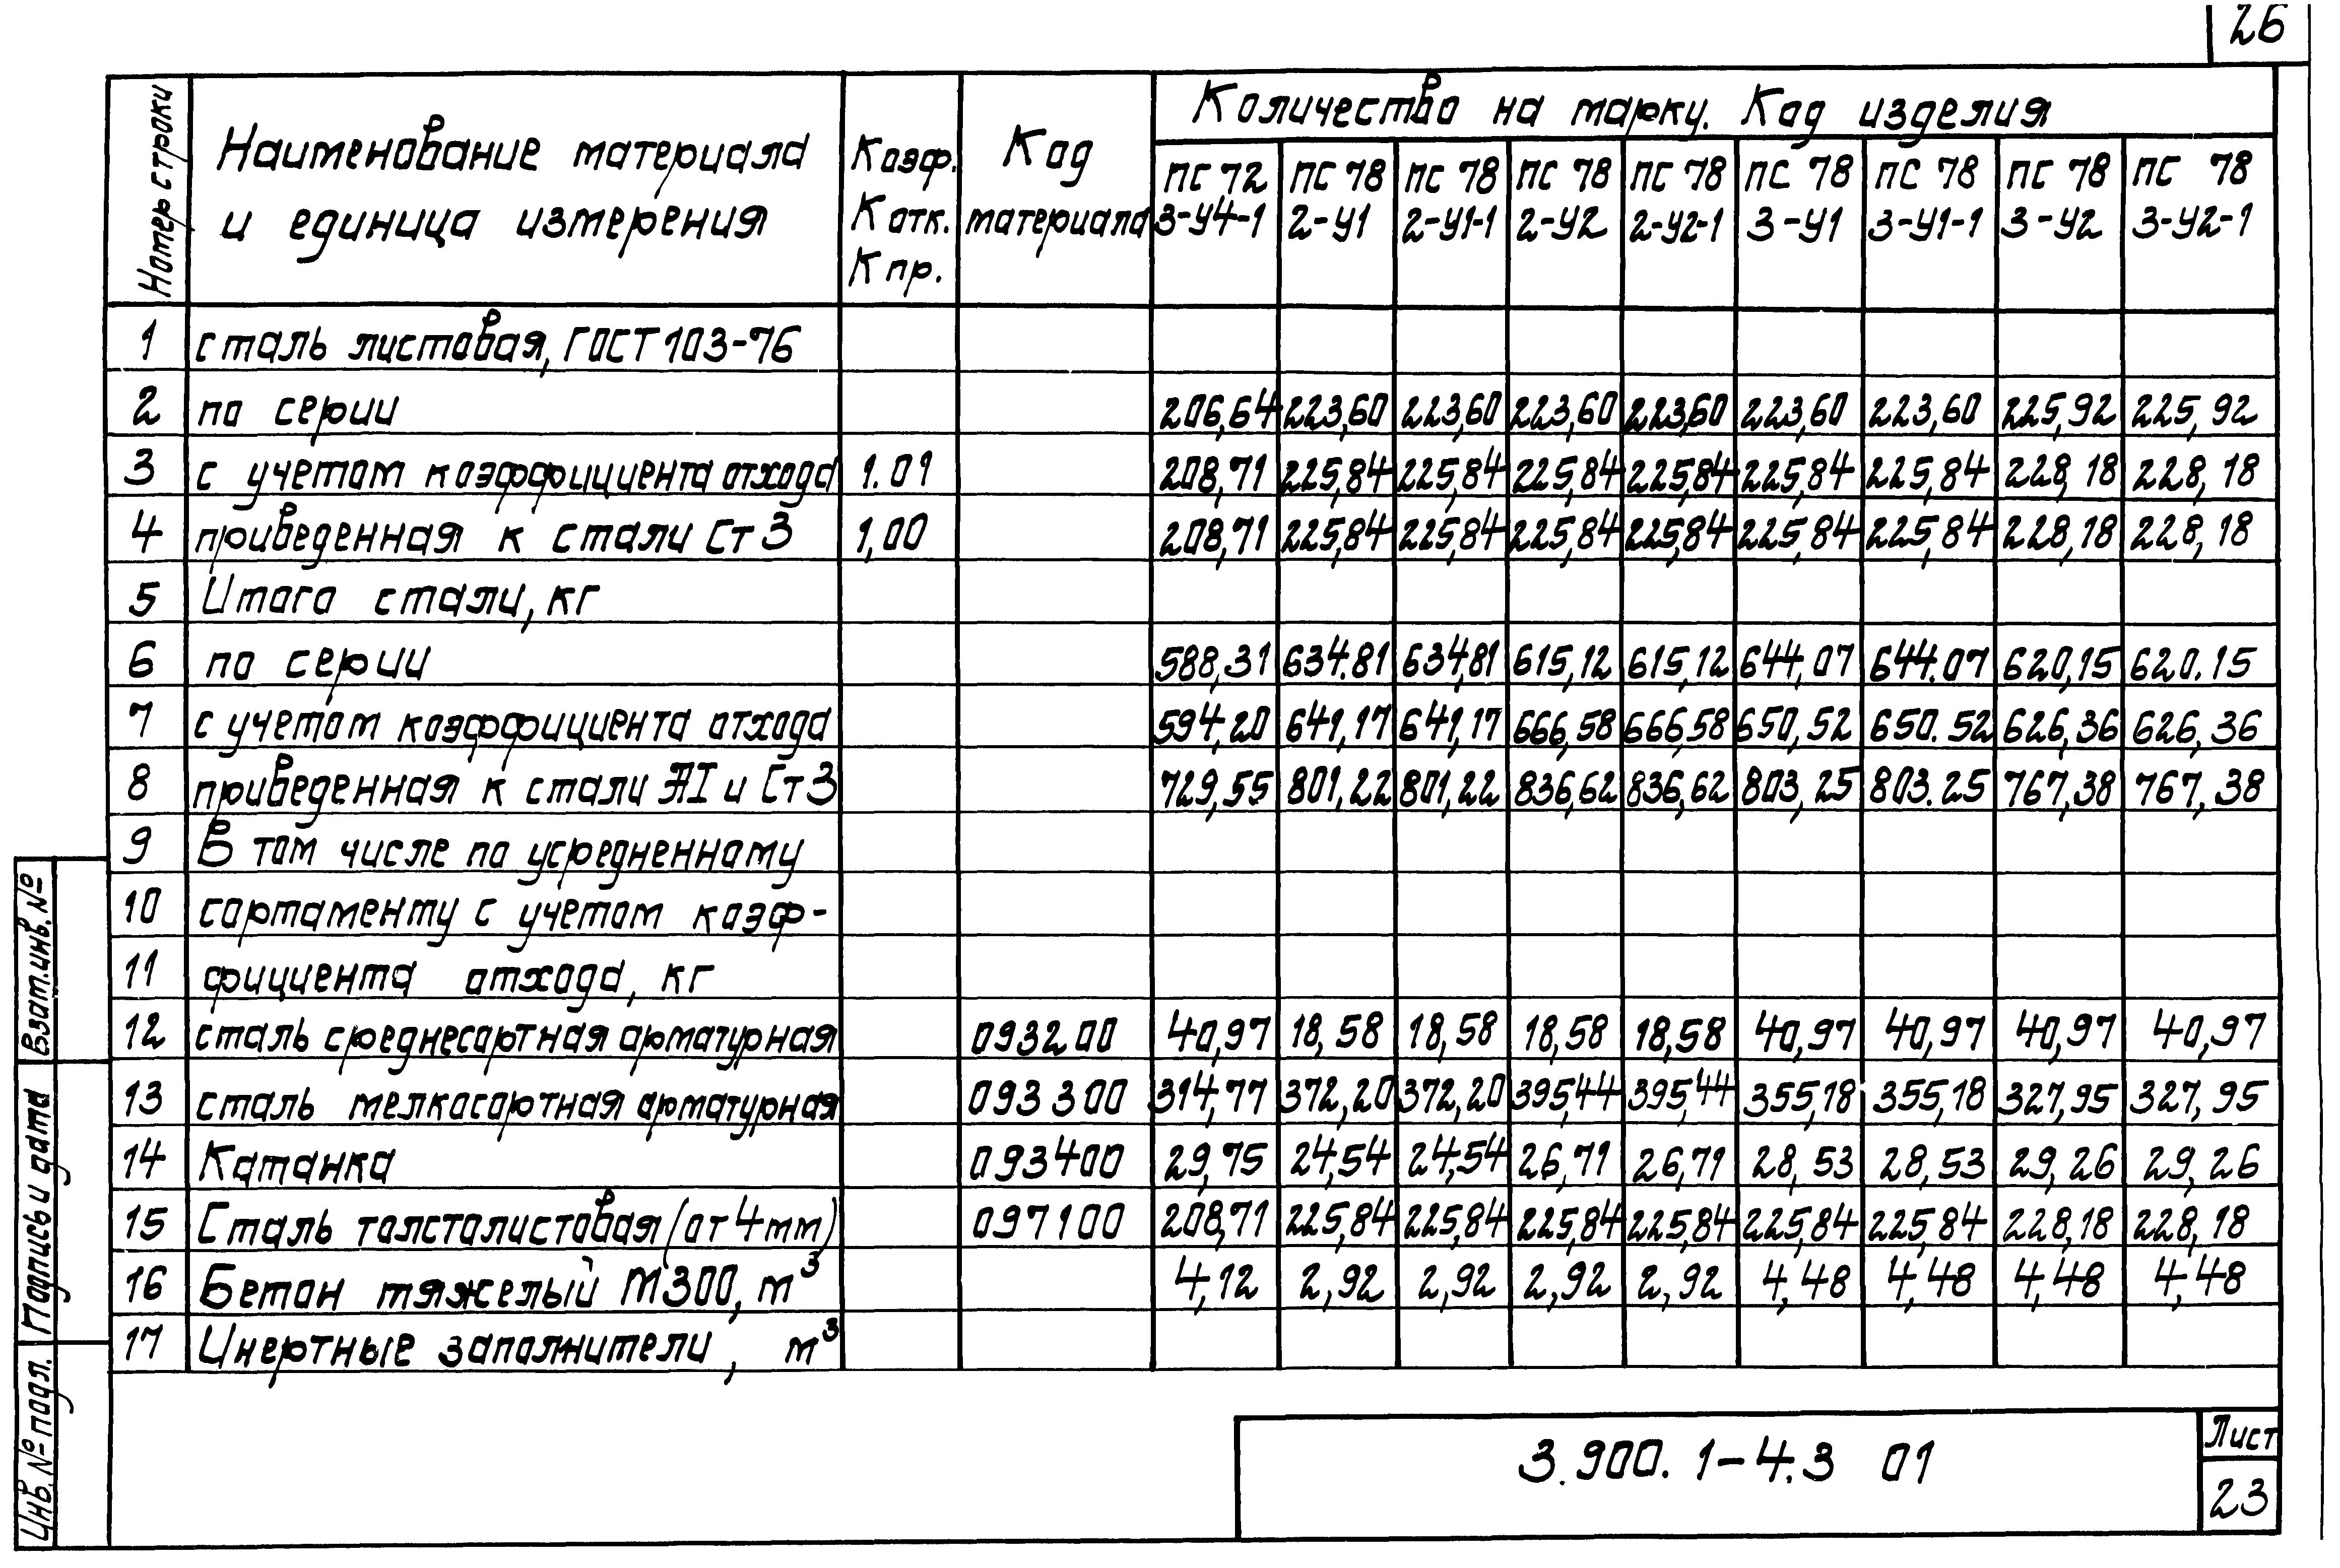 26
Номер строки
Наименование материала и единица измерения
Коэф. Котк. Кпр.
Код материала
Количество на марку. Код изделия
ПС 72 3-У4-1
ПС 78 2-У1
ПС 78 2-У1-1
ПС 78 2-У2
ПС 78 2-У2-1
ПС 78 3-У1
ПС 78 3-У1-1
ПС 78 3-У2
ПС 78 3-У2-1
1 сталь листовая, ГОСТ 103-76
2 по серии 206,64 223,60 223,60 223,60 223,60 223,60 223,60 225,92 225,92
3 с учетом коэффициента отхода 1.01 208,71 225,84 225,84 225,84 225,84 225,84 225,84 228,18 228,18
4 приведенная к стали Ст 3 1,00 208,71 225,84 225,84 225,84 225,84 225,84 225,84 228,18 228,18
5 Итого стали, кг
6 по серии 588,31 634.81 634,81 615,12 615,12 644,07 644.07 620,15 620.15
7 с учетом коэффициента отхода 594,20 641,17 641,17 666,58 666,58 650,52 650.52 626,36 626,36
8 приведенная к стали АI и Ст 3 729,55 801,22 801,22 836,62 836,62 803,25 803.25 767,38 767,38
9 В том числе по усредненному
10 сортаменту с учетом коэф-
11 фициента отхода, кг
12 сталь среднесортная арматурная 093200 40,97 18,58 18,58 18,58 18,58 40,97 40,97 40,97 40,97
13 сталь мелкосортная арматурная 093300 314,77 372,20 372,20 395,44 395,44 355,18 355,18 327,95 327,95
14 Катанка 093400 29,75 24,54 24,54 26,71 26,71 28,53 28,53 29,26 29,26
15 Сталь толстолистовая (от 4мм) 097100 208,71 225,84 225,84 225,84 225,84 225,84 225,84 228,18 228,18
16 Бетон тяжелый М300, м³ 4,12 2,92 2,92 2,92 2,92 4,48 4,48 4,48 4,48
17 Инертные заполнители, м³
Взам.инв.№
Подпись и дата
Инв.№ подл.
3.900.1-4.3 01
Лист
23